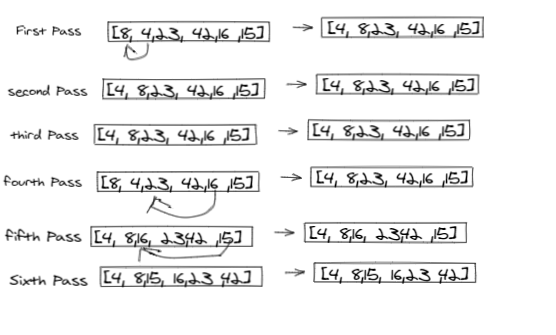 First Pass [8, 4,23, 42,16 ,15] → [4, 8,23, 42,16 ,15]
second Pass [4, 8,23, 42,16 ,15] → [4, 8,23, 42,16 ,15]
third Pass [4, 8,23, 42,16 ,15] → [4, 8,23, 42,16 ,15]
fourth Pass [8, 4,23, 42,16 ,15] → [4, 8,23, 42,16 ,15]
fifth Pass [4, 8,16, 23,42 ,15] → [4, 8,16, 23,42 ,15]
Sixth Pass [4, 8,15, 16,23 ,42] → [4, 8,15, 16,23 ,42]